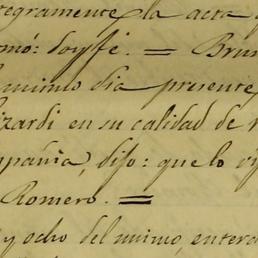 tegramente la acta
mó: doy fé. = Brun
mismo dia presente
izardi en su calidad de
pañia, dijo: que lo
Romero. =
y ocho del mismo, enter